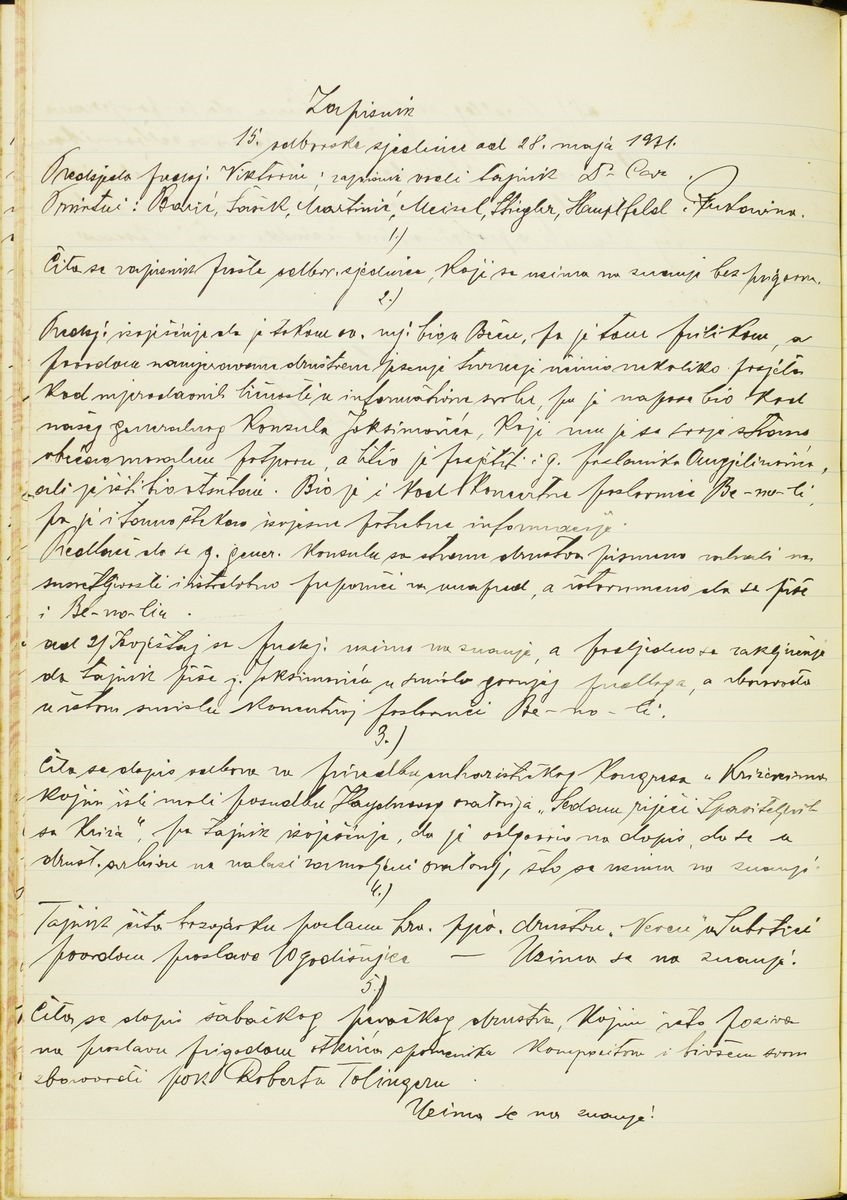 Zapisnik
15. odborske sjednice od 28. maja 1931.
Predsjeda predsj. Viktorin; zapisnik vodi tajnik Dr Cava.
Prisutni: Barić, Saršek, Martinić, Meisel, Stiegler, Hauptfeld i
1.)
Čita se zapisnik prošle odbor. sjednice, koji se uzima na znanje bez prigovora.
2.)
Predsj. izvješćuje da je tokom ov. mj. bio u Beču, pa je tom prilikom, a
povodom namjeravane društvene jesenje turneje učinio nekoliko posjeta
kod mjerodavnih ličnosti u informativne svrhe, pa je napose bio kod
našeg generalnog konzula Joksimovića, koji mu je sa svoje strane
obećao moralnu potporu, a htio je posjetiti i g. poslanika Angjelinovića,
ali je isti bio otsutan. Bio je i kod koncertne poslovnice Be-no-ti,
pa je i tamo stekao izvjesne potrebne informacije.
Predlaže da se g. gener. konzulu sa strane društva pismeno zahvali na
susretljivosti i istodobno preporuči za unapred, a istovremeno da se piše
i Be-no-tiu.
ad 2) Izvještaj se predsj. uzima na znanje, a posljedno se zaključuje
da tajnik piše g. Joksimoviću u smislu gornjeg predloga, a zborovođa
u istom smislu koncertnoj poslovnici Be-no-ti.
3.)
Čita se dopis odbora za priredbu euharističkog kongresa u Križevcima
kojim isti moli posudbu Haydnovog oratorija „Sedam riječi Spasiteljevih
sa križa", pa tajnik izvješćuje, da je odgovorio na dopis, da se u
društ. arhivu ne nalazi zamoljeni oratorij, što se uzima na znanje.
4.)
Tajnik čita brzojavku poslanu hrv. pjev. društvu „Neven" u Subotici
povodom proslave 10 godišnjice — Uzima se na znanje.
5.)
Čita se dopis šabačkog pevačkog društva, kojim isto poziva
na proslavu prigodom otkrića spomenika kompozitoru i bivšem svom
zborovođi pok. Robertu Tolingeru.
Uzima se na znanje!